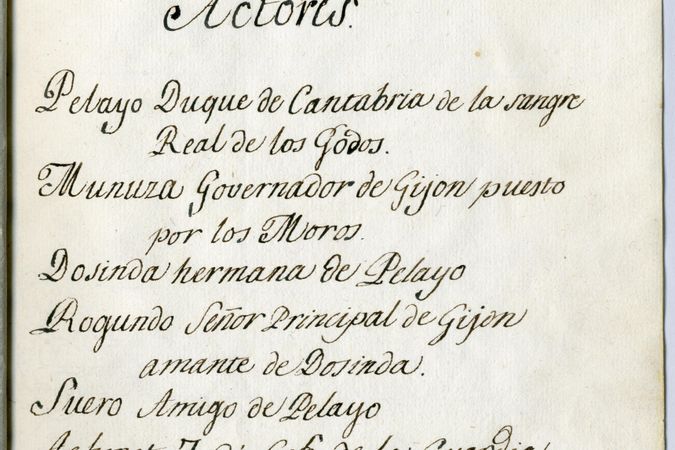 Actores.
Pelayo Duque de Cantabria de la sangre
Real de los Godos.
Munuza Governador de Gijon puesto
por los Moros.
Dosinda hermana de Pelayo
Rogundo Señor Principal de Gijon
amante de Dosinda.
Suero Amigo de Pelayo
de la Guardia